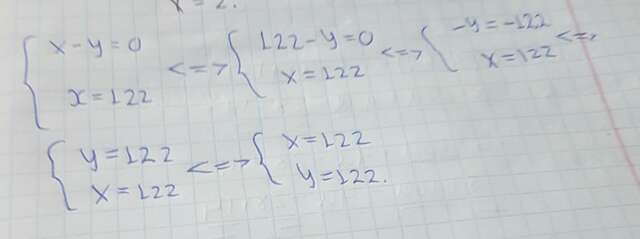 x = 2.
{ x - y = 0 <=> { 122 - y = 0 <=> { -y = -122 <=>
x = 122 x = 122 x = 122
{ y = 122 <=> { x = 122
x = 122 y = 122.